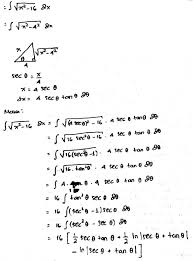 = ∫ √x²-16 dx
= ∫ √x²-4² dx
x √x²-4²
4
sec θ = x/4
x = 4 sec θ
dx = 4 sec θ tan θ dθ
Maka:
∫ √x²-16 dx = ∫ √(4 sec θ)² - 16 . 4 sec θ tan θ dθ
= ∫ √16 sec² θ - 16 . 4 sec θ tan θ dθ
= ∫ √16(sec² θ - 1) . 4 sec θ tan θ dθ
= ∫ √16 tan² θ . 4 sec θ tan θ dθ
= ∫ 4 . tan θ . 4 sec θ tan θ dθ
= 16 ∫ tan² θ sec θ dθ
= 16 ∫ (sec² θ - 1) sec θ dθ
= 16 ∫ (sec³ θ - sec θ) dθ
= 16 [ 1/2 sec θ tan θ + 1/2 ln |sec θ + tan θ|
- ln |sec θ + tan θ| ]